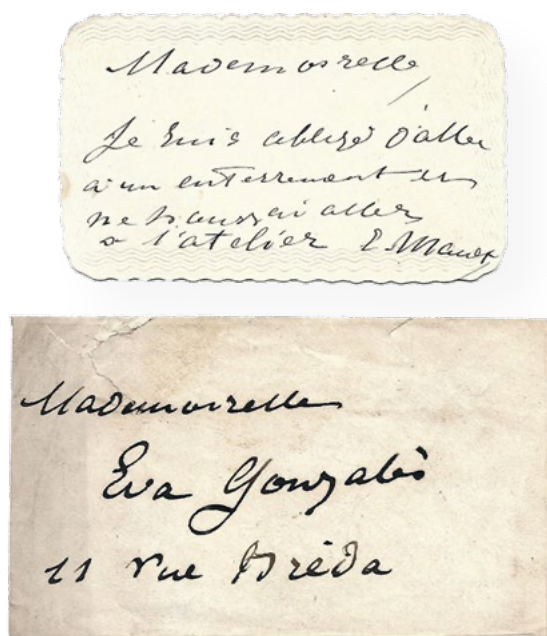 Mademoiselle
Je suis obligé d'aller
à un enterrement et
ne pourrai aller
à l'atelier E. Manet
Mademoiselle
Eva Gonzalès
11 rue Bréda